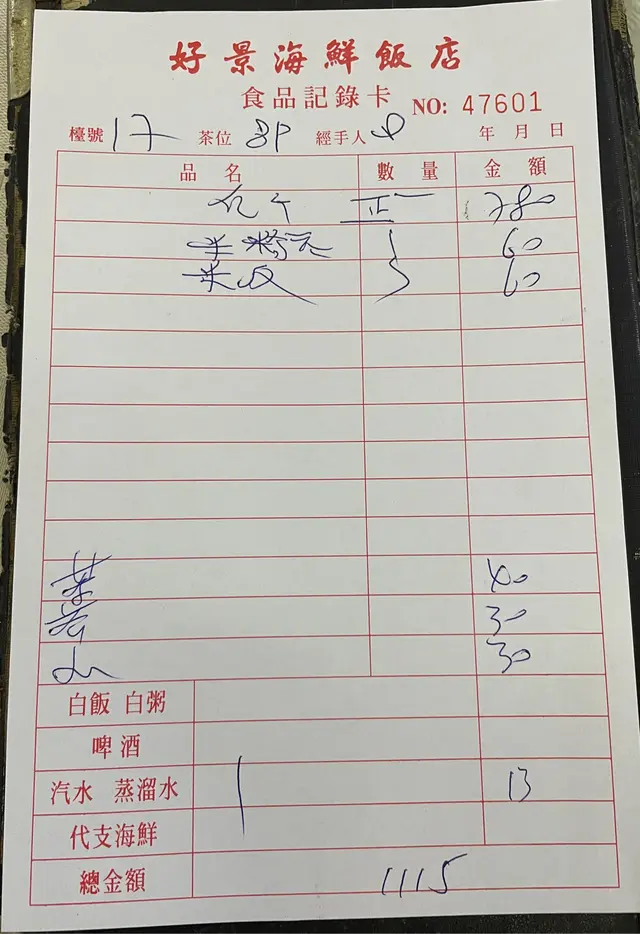 好景海鮮飯店
食品記錄卡 NO: 47601
檯號 17 茶位 8P 經手人 年 月 日
品名 數量 金額
正一 780
1 60
60
茶 40
30
30
白飯 白粥
啤酒
汽水 蒸溜水 1 13
代支海鮮
總金額 1115